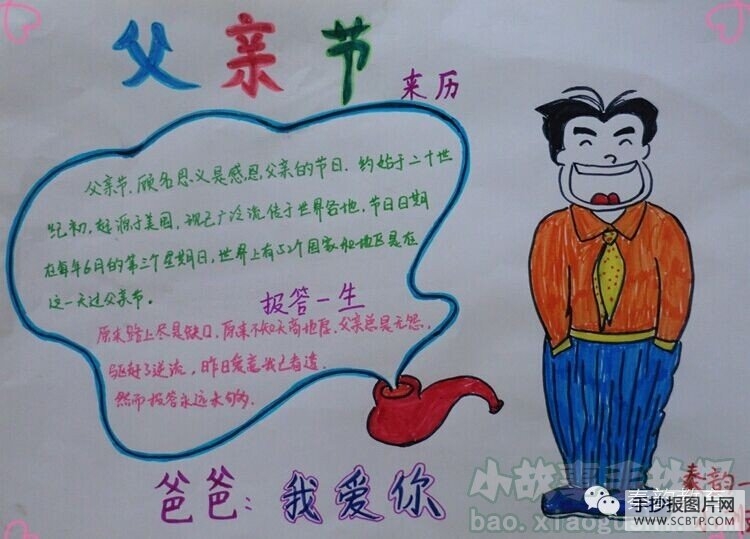 父亲节
来历
父亲节,顾名思义是感恩父亲的节日.约始于二十世
纪初,起源于美国,现已广泛流传于世界各地,节日日期
在每年6月的第三个星期日,世界上有52个国家和地区是在
这一天过父亲节。
报答一生
原来路上尽是缺口,原来不知天高地厚.父亲总是无怨,
驱赶了逆流,昨日爱意我已看透.
然而报答永远未句够.
爸爸:我爱你
小故事手抄报
bao.xiaogu
秦韵一
手抄报图片网
WWW.SCBTP.COM